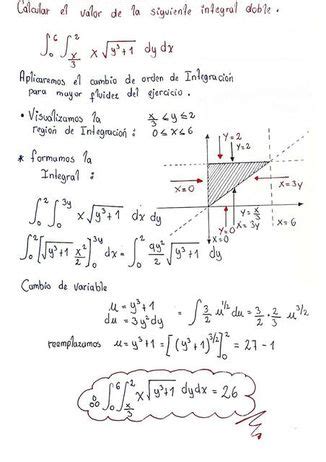 Calcular el valor de la siguiente integral doble.
∫₀⁶ ∫_{x/3}² x √(y³+1) dy dx
Aplicaremos el cambio de orden de Integración
para mayor fluidez del ejercicio.
• Visualizamos la región de Integración: x/3 ≤ y ≤ 2
0 ≤ x ≤ 6
Y=2
Y=2
X=0
X=3y
Y=0
Y=x/3
X=3y
X=6
X=0
* formamos la
Integral :
∫₀² ∫₀^{3y} x √(y³+1) dx dy
∫₀² [√(y³+1) x²/2]₀^{3y} dx = ∫₀² 9y²/2 √(y³+1) dy
Cambio de variable
u = y³+1
du = 3y²dy
= ∫ 3/2 u^{1/2} du = 3/2 · 2/3 u^{3/2}
reemplazamos u = y³+1 = [(y³+1)^{3/2}]₀² = 27 - 1
∴ ∫₀⁶ ∫_{x/3}² x √(y³+1) dy dx = 26